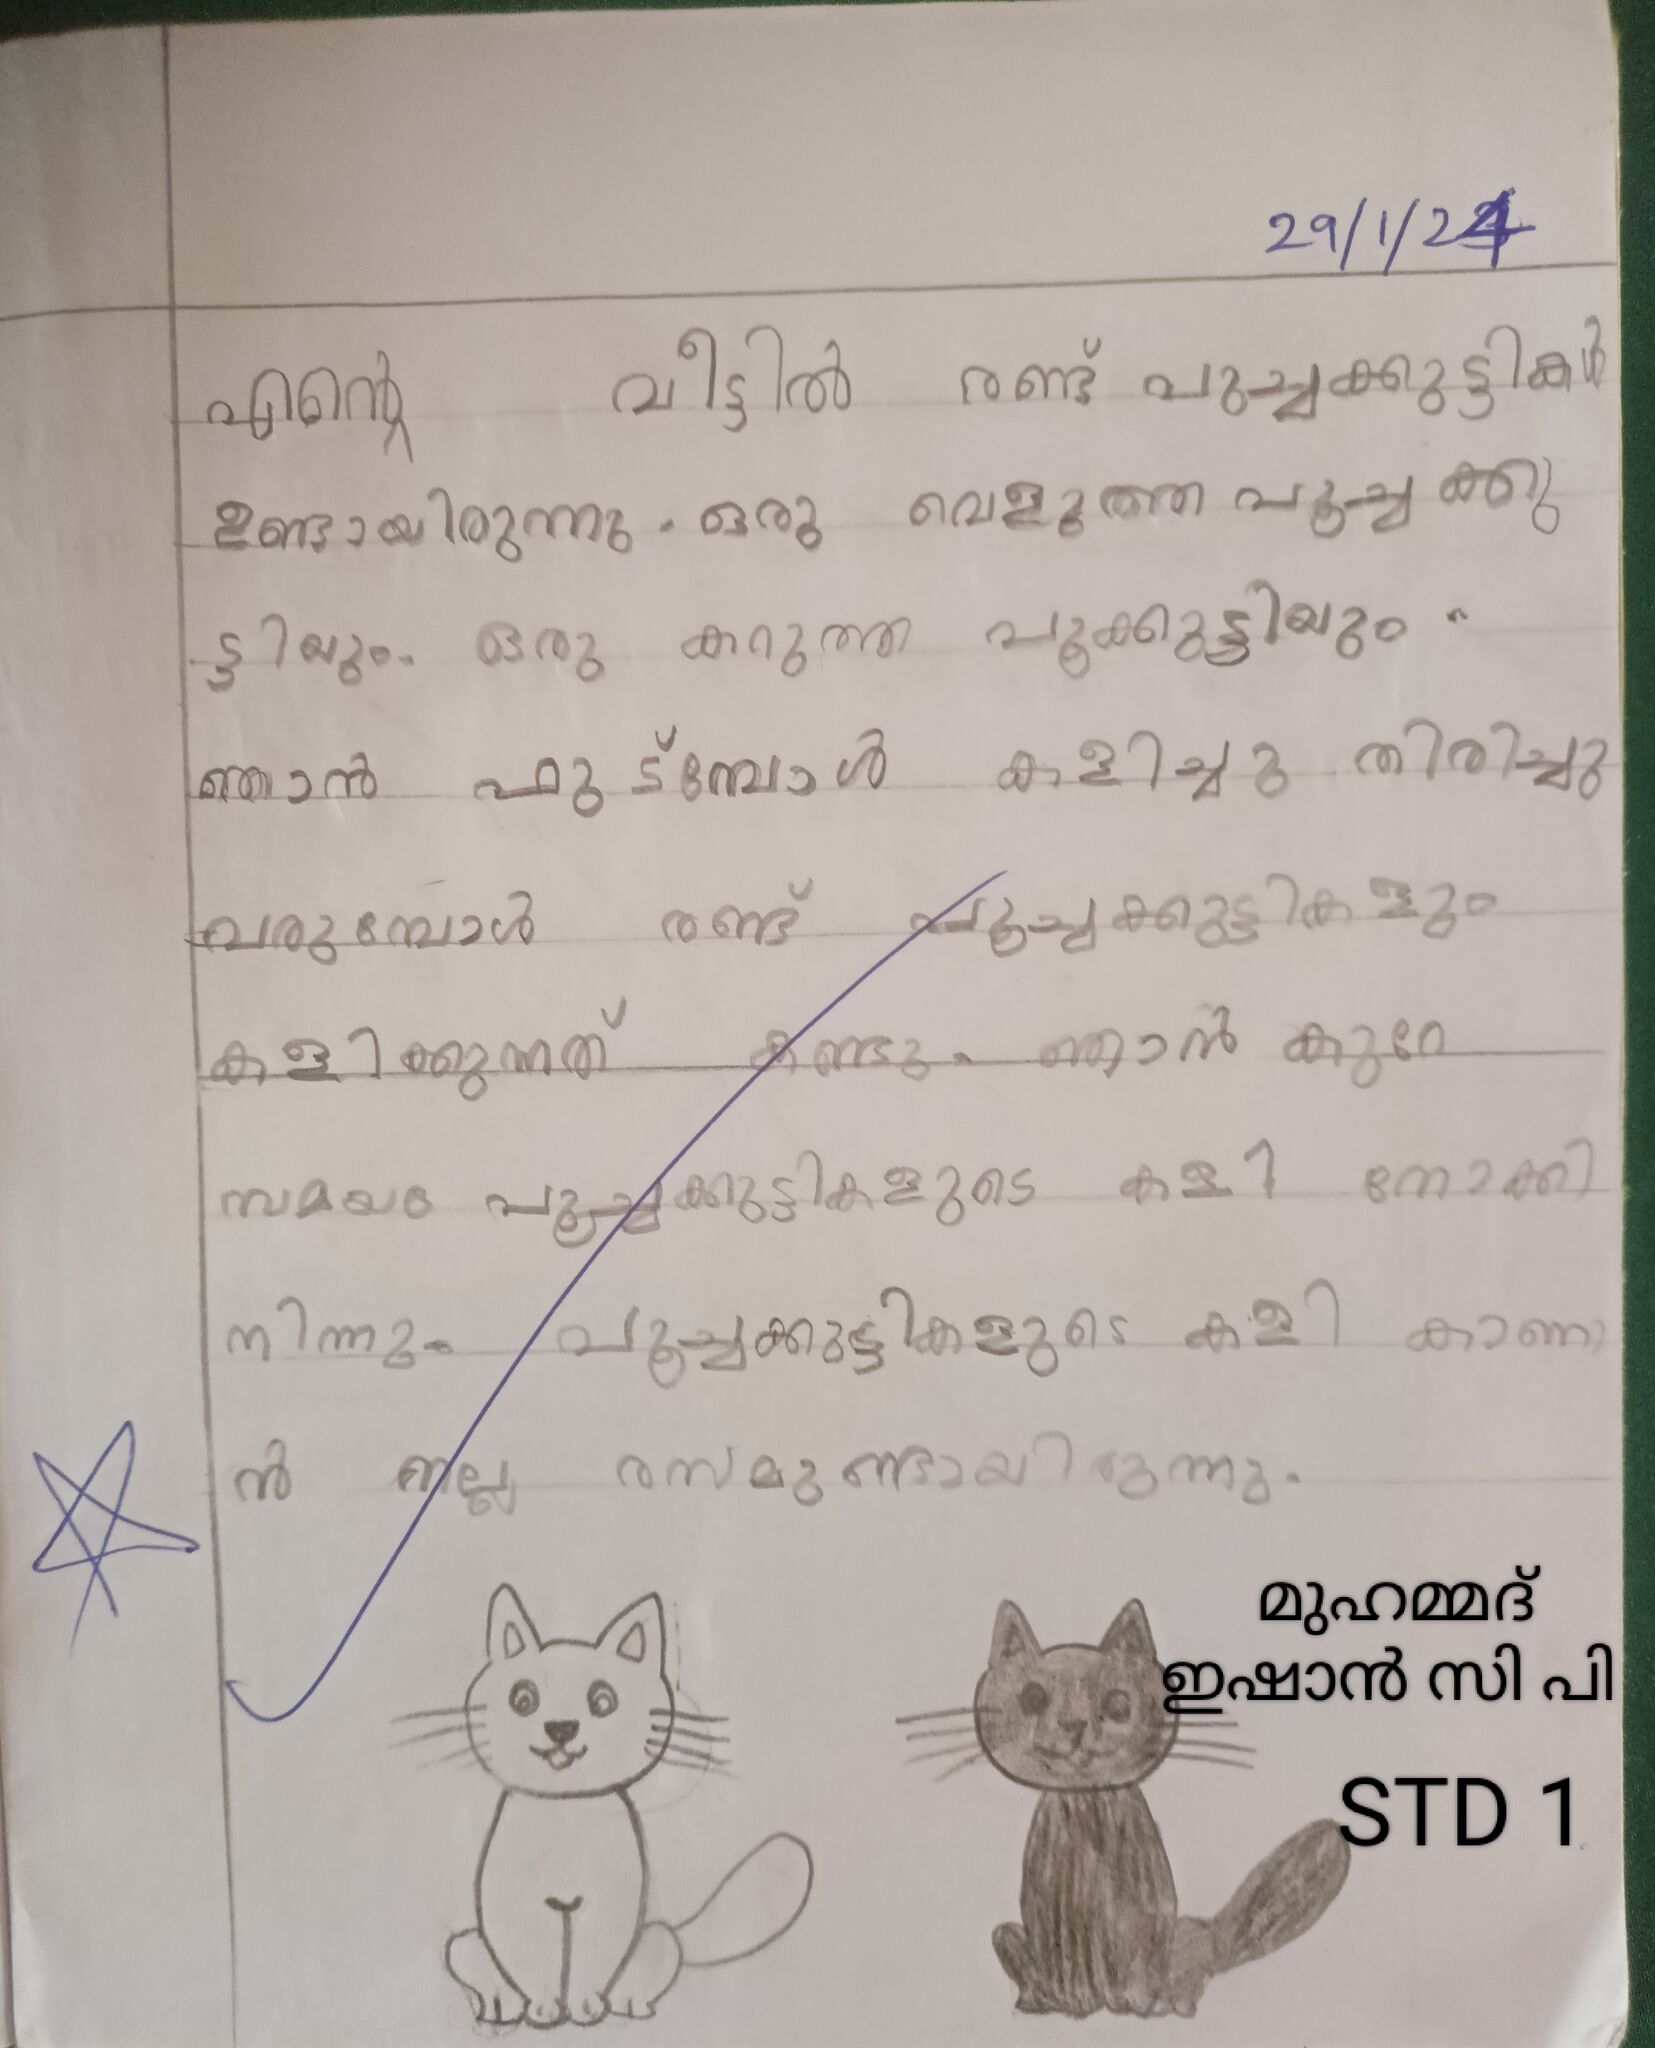 29/1/24
എന്റെ വീട്ടിൽ രണ്ട് പുച്ചക്കുട്ടികൾ
ഉണ്ടായിരുന്നു. ഒരു വെളുത്ത പൂച്ചക്കു
ട്ടിയും. ഒരു കറുത്ത പൂക്കുട്ടിയും.
ഞാൻ ഫുട്ബോൾ കളിച്ചു തിരിച്ചു
വരുമ്പോൾ രണ്ട് പൂച്ചക്കുട്ടികളും
കളിക്കുന്നത് കണ്ടു. ഞാൻ കുറേ
സമയം പൂച്ചക്കുട്ടികളുടെ കളി നോക്കി
നിന്നു. പൂച്ചക്കുട്ടികളുടെ കളി കാണാ
ൻ നല്ല രസമുണ്ടായിരുന്നു.
മുഹമ്മദ്
ഇഷാൻ സി പി
STD 1